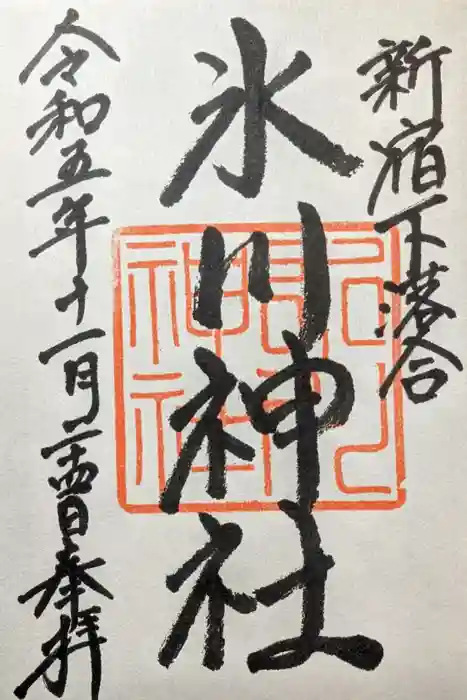 新宿下落合
氷川神社
令和五年十一月二十四日奉拝